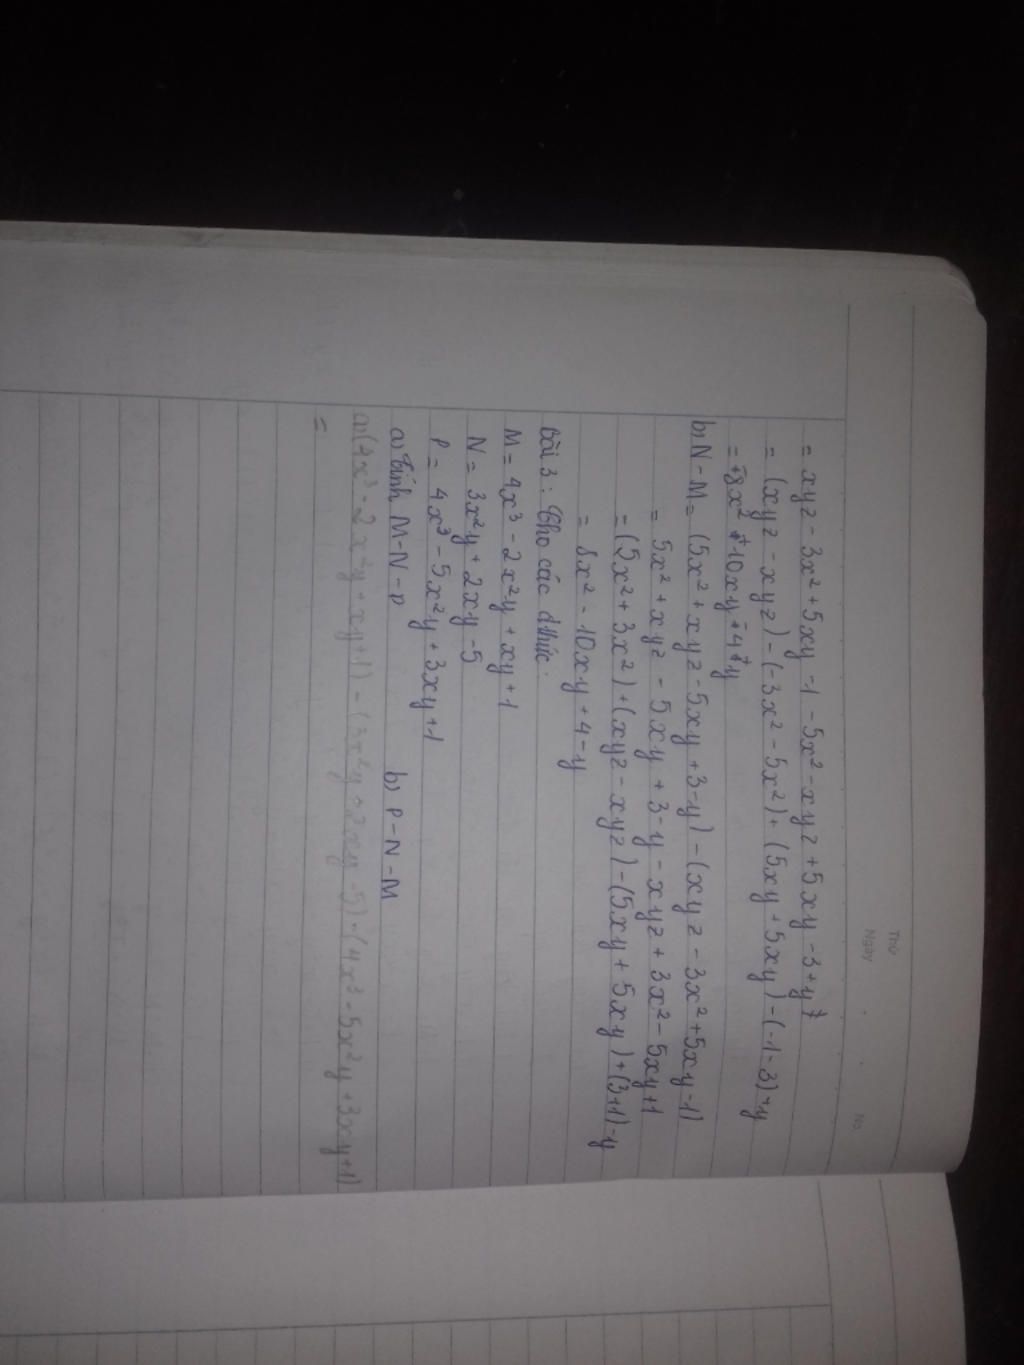 Thứ
Ngày
No.
= xyz - 3x² + 5xy - 1 - 5x² - xyz + 5xy - 3 + y
= (xyz - xyz) - (-3x² - 5x²) + (5xy + 5xy) - (-1-3) + y
= 8x² + 10xy + 4 + y
b) N - M = (5x² + xyz - 5xy + 3 - y) - (xyz - 3x² + 5xy - 1)
= 5x² + xyz - 5xy + 3 - y - xyz + 3x² - 5xy + 1
= (5x² + 3x²) + (xyz - xyz) - (5xy + 5xy) + (3+1) - y
= 8x² - 10xy + 4 - y
Bài 3: Cho các đthức:
M = 4x³ - 2x²y + xy + 1
N = 3x²y + 2xy - 5
P = 4x³ - 5x²y + 3xy + 1
a) Tính M - N - P b) P - N - M
a) (4x³ - 2x²y + xy + 1) - (3x²y + 2xy - 5) - (4x³ - 5x²y + 3xy + 1)
=